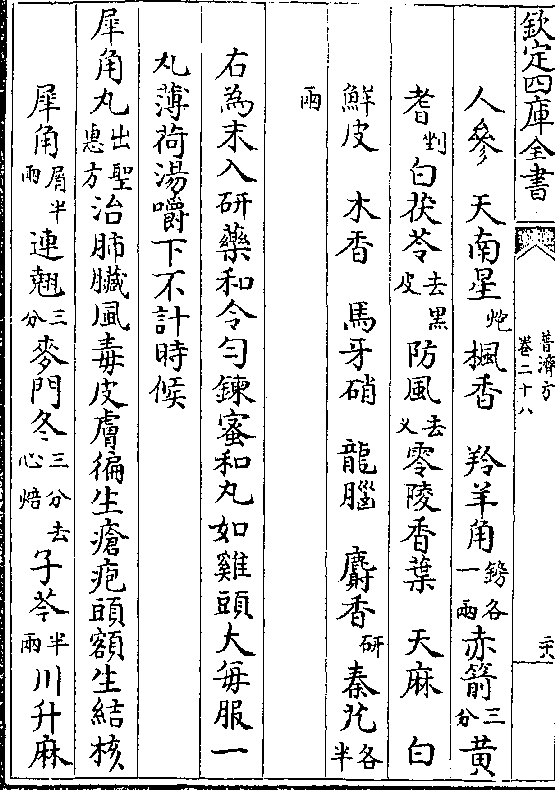 欽定四庫全書
普濟方
卷二十八
二六
人參 天南星炮 楓香 羚羊角鎊各一兩 赤箭三分 黄
耆剉 白茯苓去黒皮 防風去义 零陵香葉 天麻 白
鮮皮 木香 馬牙硝 龍腦 麝香研 秦艽各半
兩
右為末入研藥和令勻鍊蜜和丸如雞頭大每服一
丸薄荷湯嚼下不計時候
犀角丸出聖惠方治肺臟風毒皮膚徧生瘡疱頭額生結核
犀角屑半兩 連翹三分 麥門冬三分去心焙 子芩半兩 川升麻